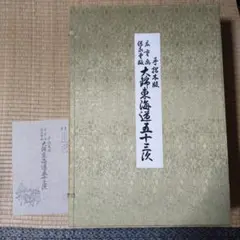 手摺木版
広重画
保永堂版
大錦東海道五十三次
大錦東海道五十三次